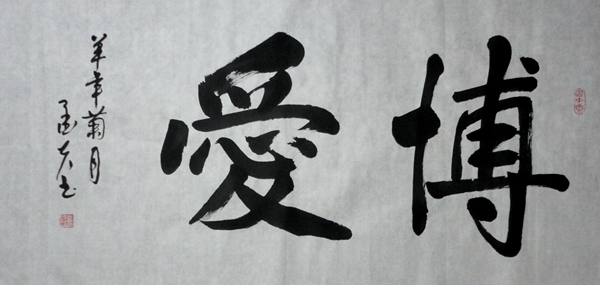 博愛
羊年菊月